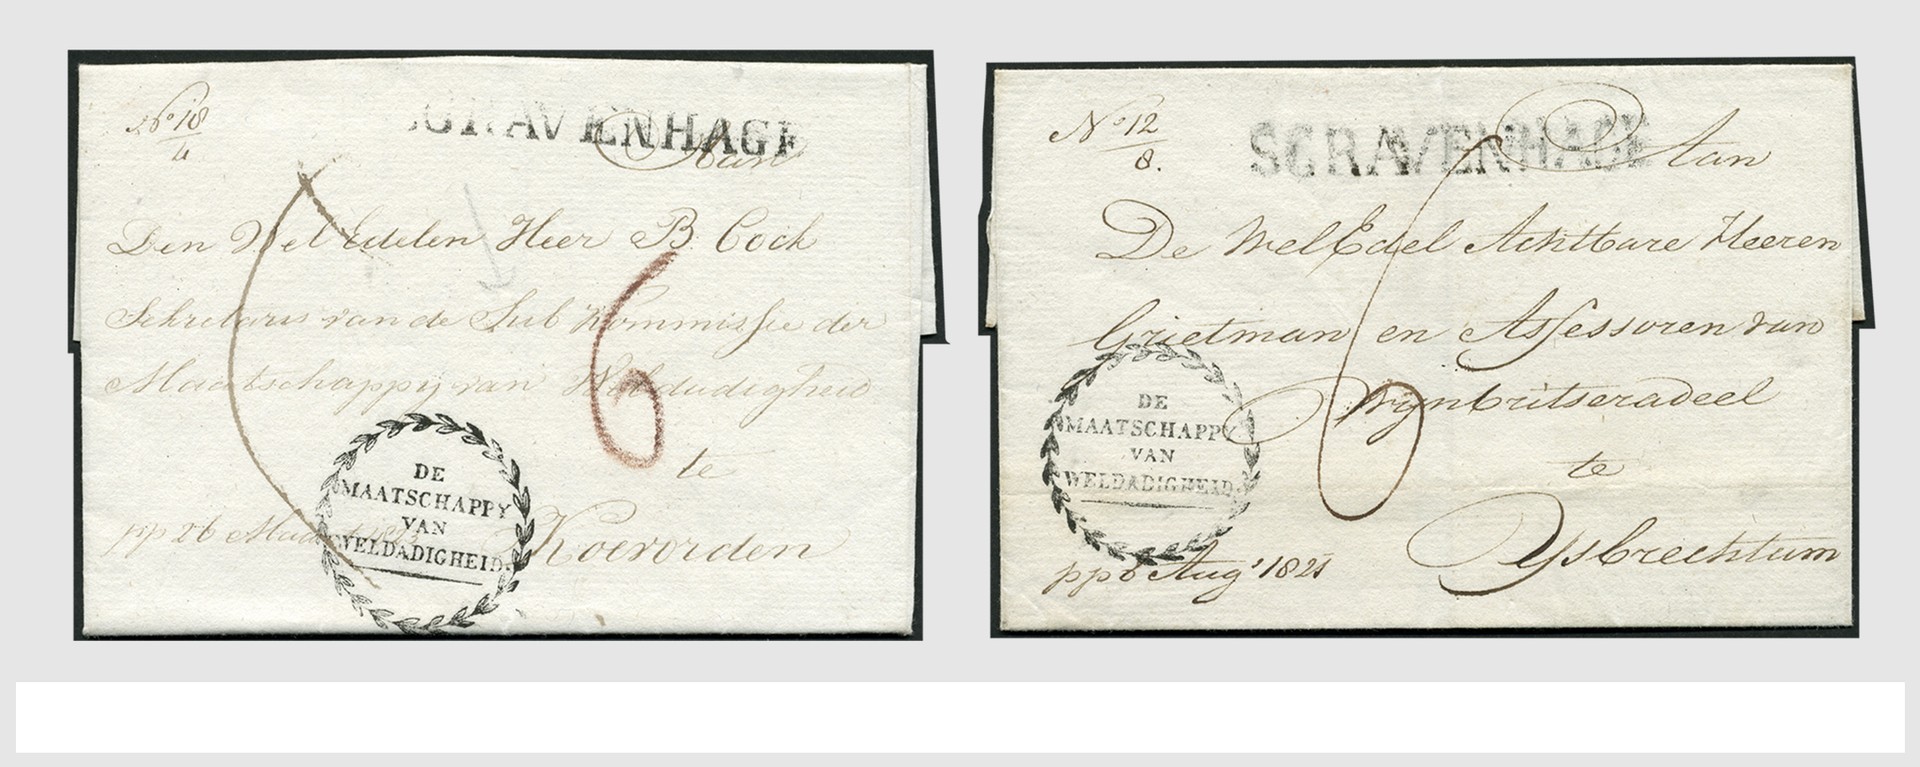 No 18/4
SGRAVENHAGE
Aan
Den Wel Edelen Heer B. Cock
Sekretaris van de Sub Kommissie der
Maatschappij van Weldadigheid
te
Koevorden
DE
MAATSCHAPPY
VAN
WELDADIGHEID.
pp 26
No 12/8.
SGRAVENHAGE
Aan
De Wel Edel Achtbare Heeren
Grietman en Assessoren van
Wijnbritseradeel
te
Ysbrechtum
DE
MAATSCHAPPY
VAN
WELDADIGHEID.
pp 6 Aug' 1821
6